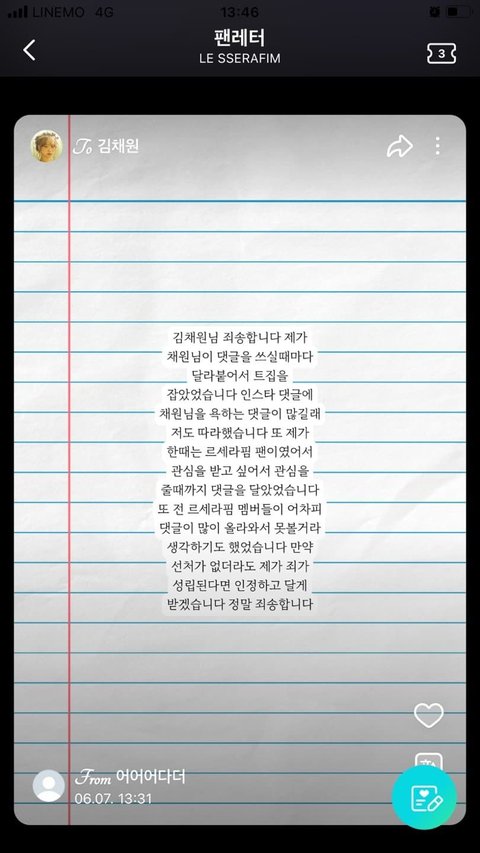 LINEMO 4G 13:46
팬레터
LE SSERAFIM
3
To 김채원
김채원님 죄송합니다 제가
채원님이 댓글을 쓰실때마다
달라붙어서 트집을
잡았었습니다 인스타 댓글에
채원님을 욕하는 댓글이 많길래
저도 따라했습니다 또 제가
한때는 르세라핌 팬이였어서
관심을 받고 싶어서 관심을
줄때까지 댓글을 달았었습니다
또 전 르세라핌 멤버들이 어차피
댓글이 많이 올라와서 못볼거라
생각하기도 했었습니다 만약
선처가 없더라도 제가 죄가
성립된다면 인정하고 달게
받겠습니다 정말 죄송합니다
From 어어어다더
06.07. 13:31